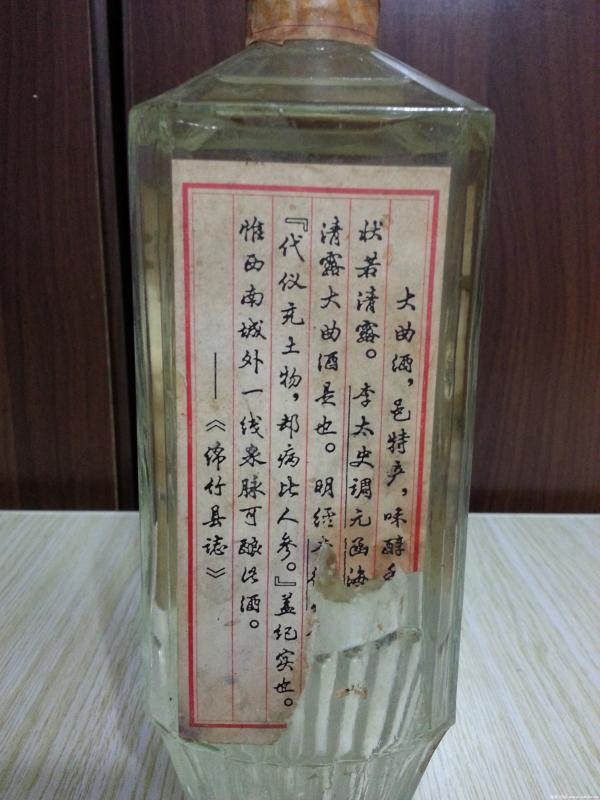 大曲酒，邑特产，味醇
状若清露。李太史调元函海
清露大曲酒是也。明经
『代仪充土物，却病比人参。』盖纪实也。
惟西南城外一线泉脉可酿此酒。
——《绵竹县誌》